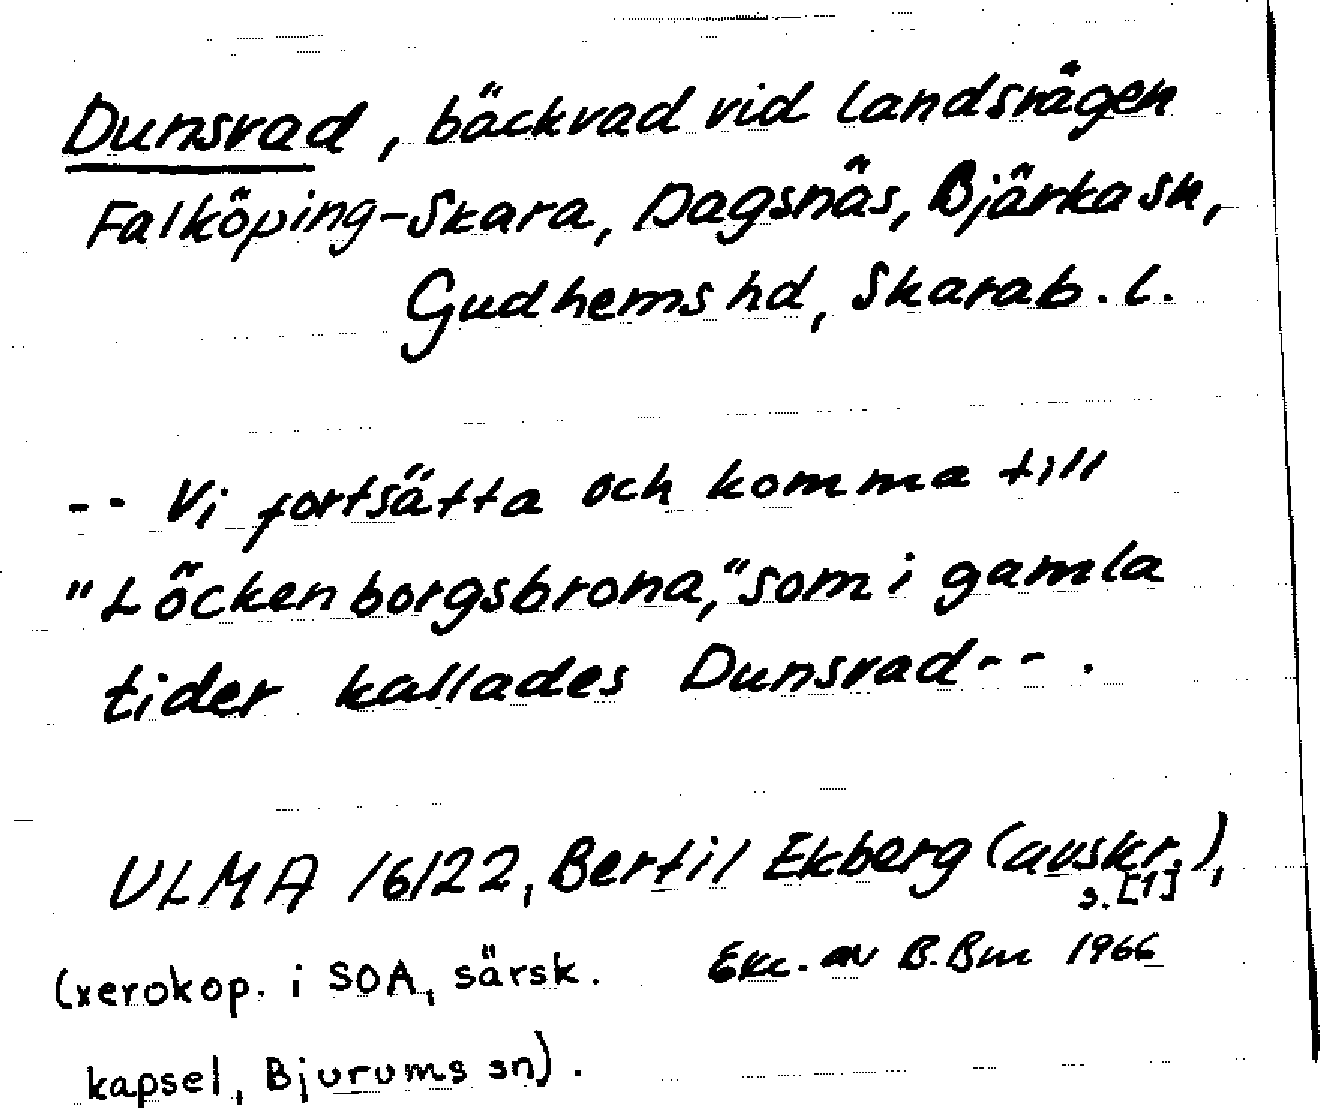 Dunsvad, bäckvad vid landsvägen
Falköping-Skara, Dagsnäs, Bjärka sn,
Gudhems hd, Skarab. l.
-- Vi fortsätta och komma till
"Löckenborgsbrona," som i gamla
tider kallades Dunsvad--.
ULMA 16122, Bertil Ekberg (avskr.),
s. [1]
(xerokop. i SOA, särsk.
Exc. av B. Bm 1966
kapsel, Bjurums sn).